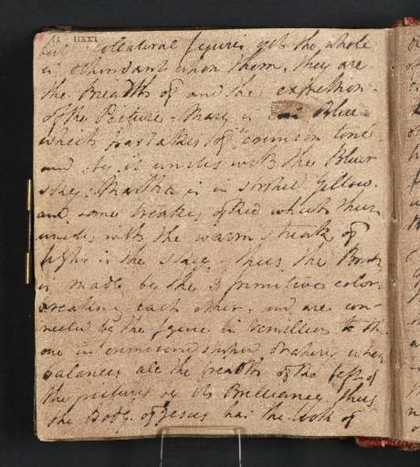 but Collateral figures yet the whole
is abundant upon them, they are
the Breadth of and the expression
of the Picture. Mary is in Blue
which partakes of crimson tone
and by it unites with the Bluer
sky. Martha is in striped Yellow
and some streaks of Red which thus
unites with the warm streak of
light in the Sky. Thus the
is made by the 3 primitive colors
breaking each other, and are con-
nected by the figure in Vermillion to the
one in crimson striped Drapery which
balances all the breadth of the left of
the picture by its Brilliancy. Thus
the Body of Jesus has the look of